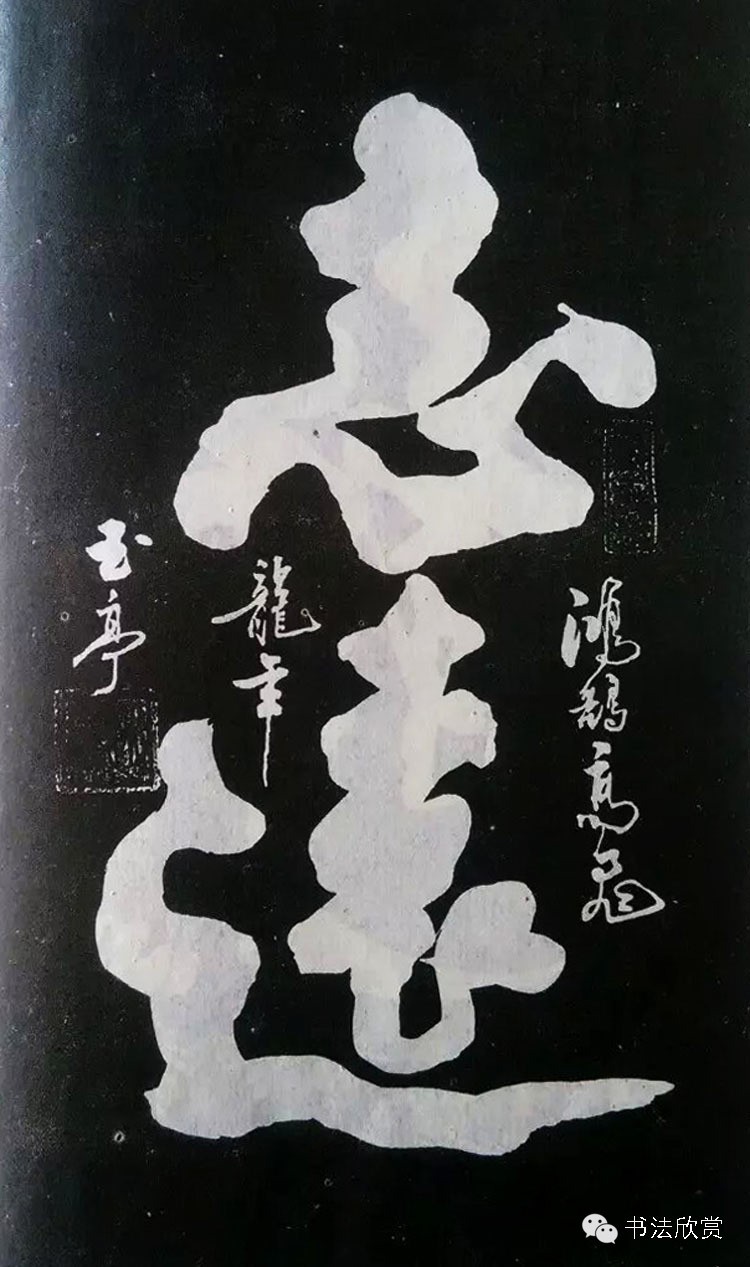 志遠
鴻鵠高飛
龍年
玉亭
书法欣赏